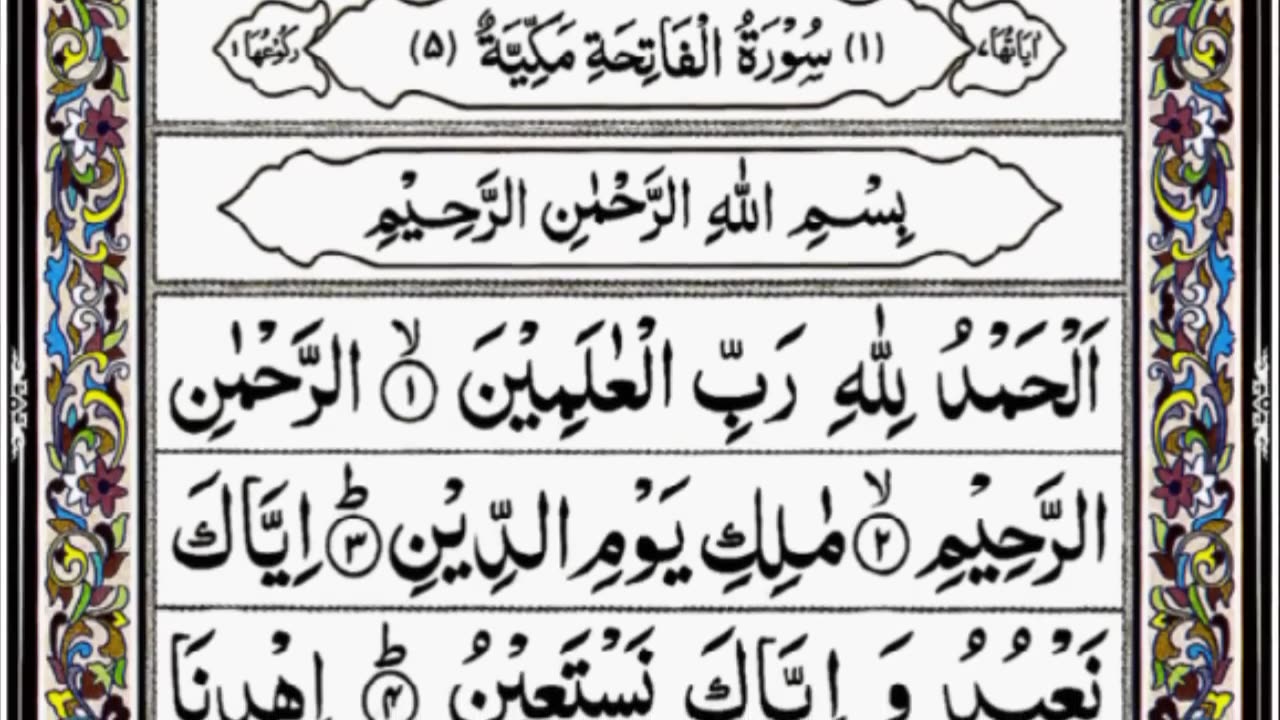 اٰيَاتُهَا ٧ (١) سُوْرَةُ الْفَاتِحَةِ مَكِّيَّةٌ (٥) رُكُوْعُهَا ١
بِسْمِ اللّٰهِ الرَّحْمٰنِ الرَّحِيْمِ
اَلْحَمْدُ لِلّٰهِ رَبِّ الْعٰلَمِيْنَ ۙ﴿١﴾ الرَّحْمٰنِ
الرَّحِيْمِ ۙ﴿٢﴾ مٰلِكِ يَوْمِ الدِّيْنِ ؕ﴿٣﴾ اِيَّاكَ
نَعْبُدُ وَ اِيَّاكَ نَسْتَعِيْنُ ؕ﴿۴﴾ اِهْدِنَا